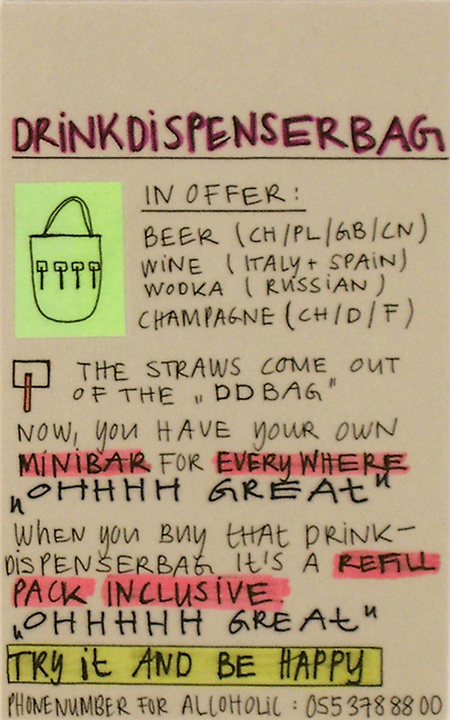 DRINKDISPENSERBAG
IN OFFER:
BEER (CH/PL/GB/CN)
WINE (ITALY + SPAIN)
WODKA (RUSSIAN)
CHAMPAGNE (CH/D/F)
THE STRAWS COME OUT
OF THE „DDBAG"
NOW, YOU HAVE YOUR OWN
MINIBAR FOR EVERYWHERE
„OHHHH GREAT"
WHEN YOU BUY THAT DRINK-
DISPENSERBAG IT'S A REFILL
PACK INCLUSIVE.
„OHHHHH GREAT"
TRY it AND BE HAPPY
PHONENUMBER FOR ALLCOHOLIC: 055 378 88 00